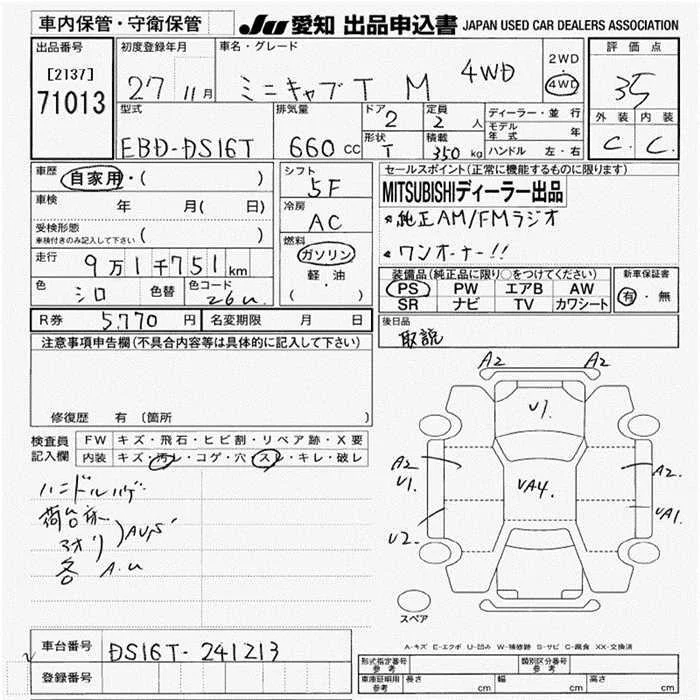 車内保管・守衛保管
JU 愛知 出品申込書 JAPAN USED CAR DEALERS ASSOCIATION
出品番号
[2137]
71013
初度登録年月
27 11月
車名・グレード
ミニキャブT M 4WD
2WD
・
4WD
評価点
35
外装 内装
C. C.
型式
EBD-DS16T
排気量
660 CC
ドア 2
形状 T
定員 2 人
積載 350 kg
ディーラー・並行
モデル年式 年
ハンドル 左・右
車歴
自家用・( )
車検 年 月( 日)
受検形態
車検付きのみ記入して下さい ( )
走行 9万1千751km
色 シロ 色替 色コード 26u
シフト
5F
冷房
AC
燃料
ガソリン
軽・油
( )
セールスポイント(正常に機能するものに限ります)
MITSUBISHIディーラー出品
*純正AM/FMラジオ
*ワンオーナー!!
装備品(純正品に限り○をつけてください)
PS PW エアB AW
SR ナビ TV カワシート
新車保証書
有・無
R券 5,770円 名変期限 月 日
後日品
取説
注意事項申告欄(不具合内容等は具体的に記入して下さい)
修復歴 有〔箇所 〕
検査員記入欄
FW キズ・飛石・ヒビ割・リペア跡・X要
内装 キズ・汚レ・コゲ・穴・スレ・キレ・破レ
ハンドルハゲ
荷台床
アオリ
各 A.U
A2 A2
U1.
A2
U1.
UA4.
A2.
UA1.
U2.
スペア
A-キズ E-エクボ U-凹み W-補修跡 S-サビ C-腐食 XX-交換済
車台番号 DS16T-241213
登録番号
形式指定番号 参考 類別区分番号 参考
車庫証明用 参考 長さ cm 幅 cm 高さ cm